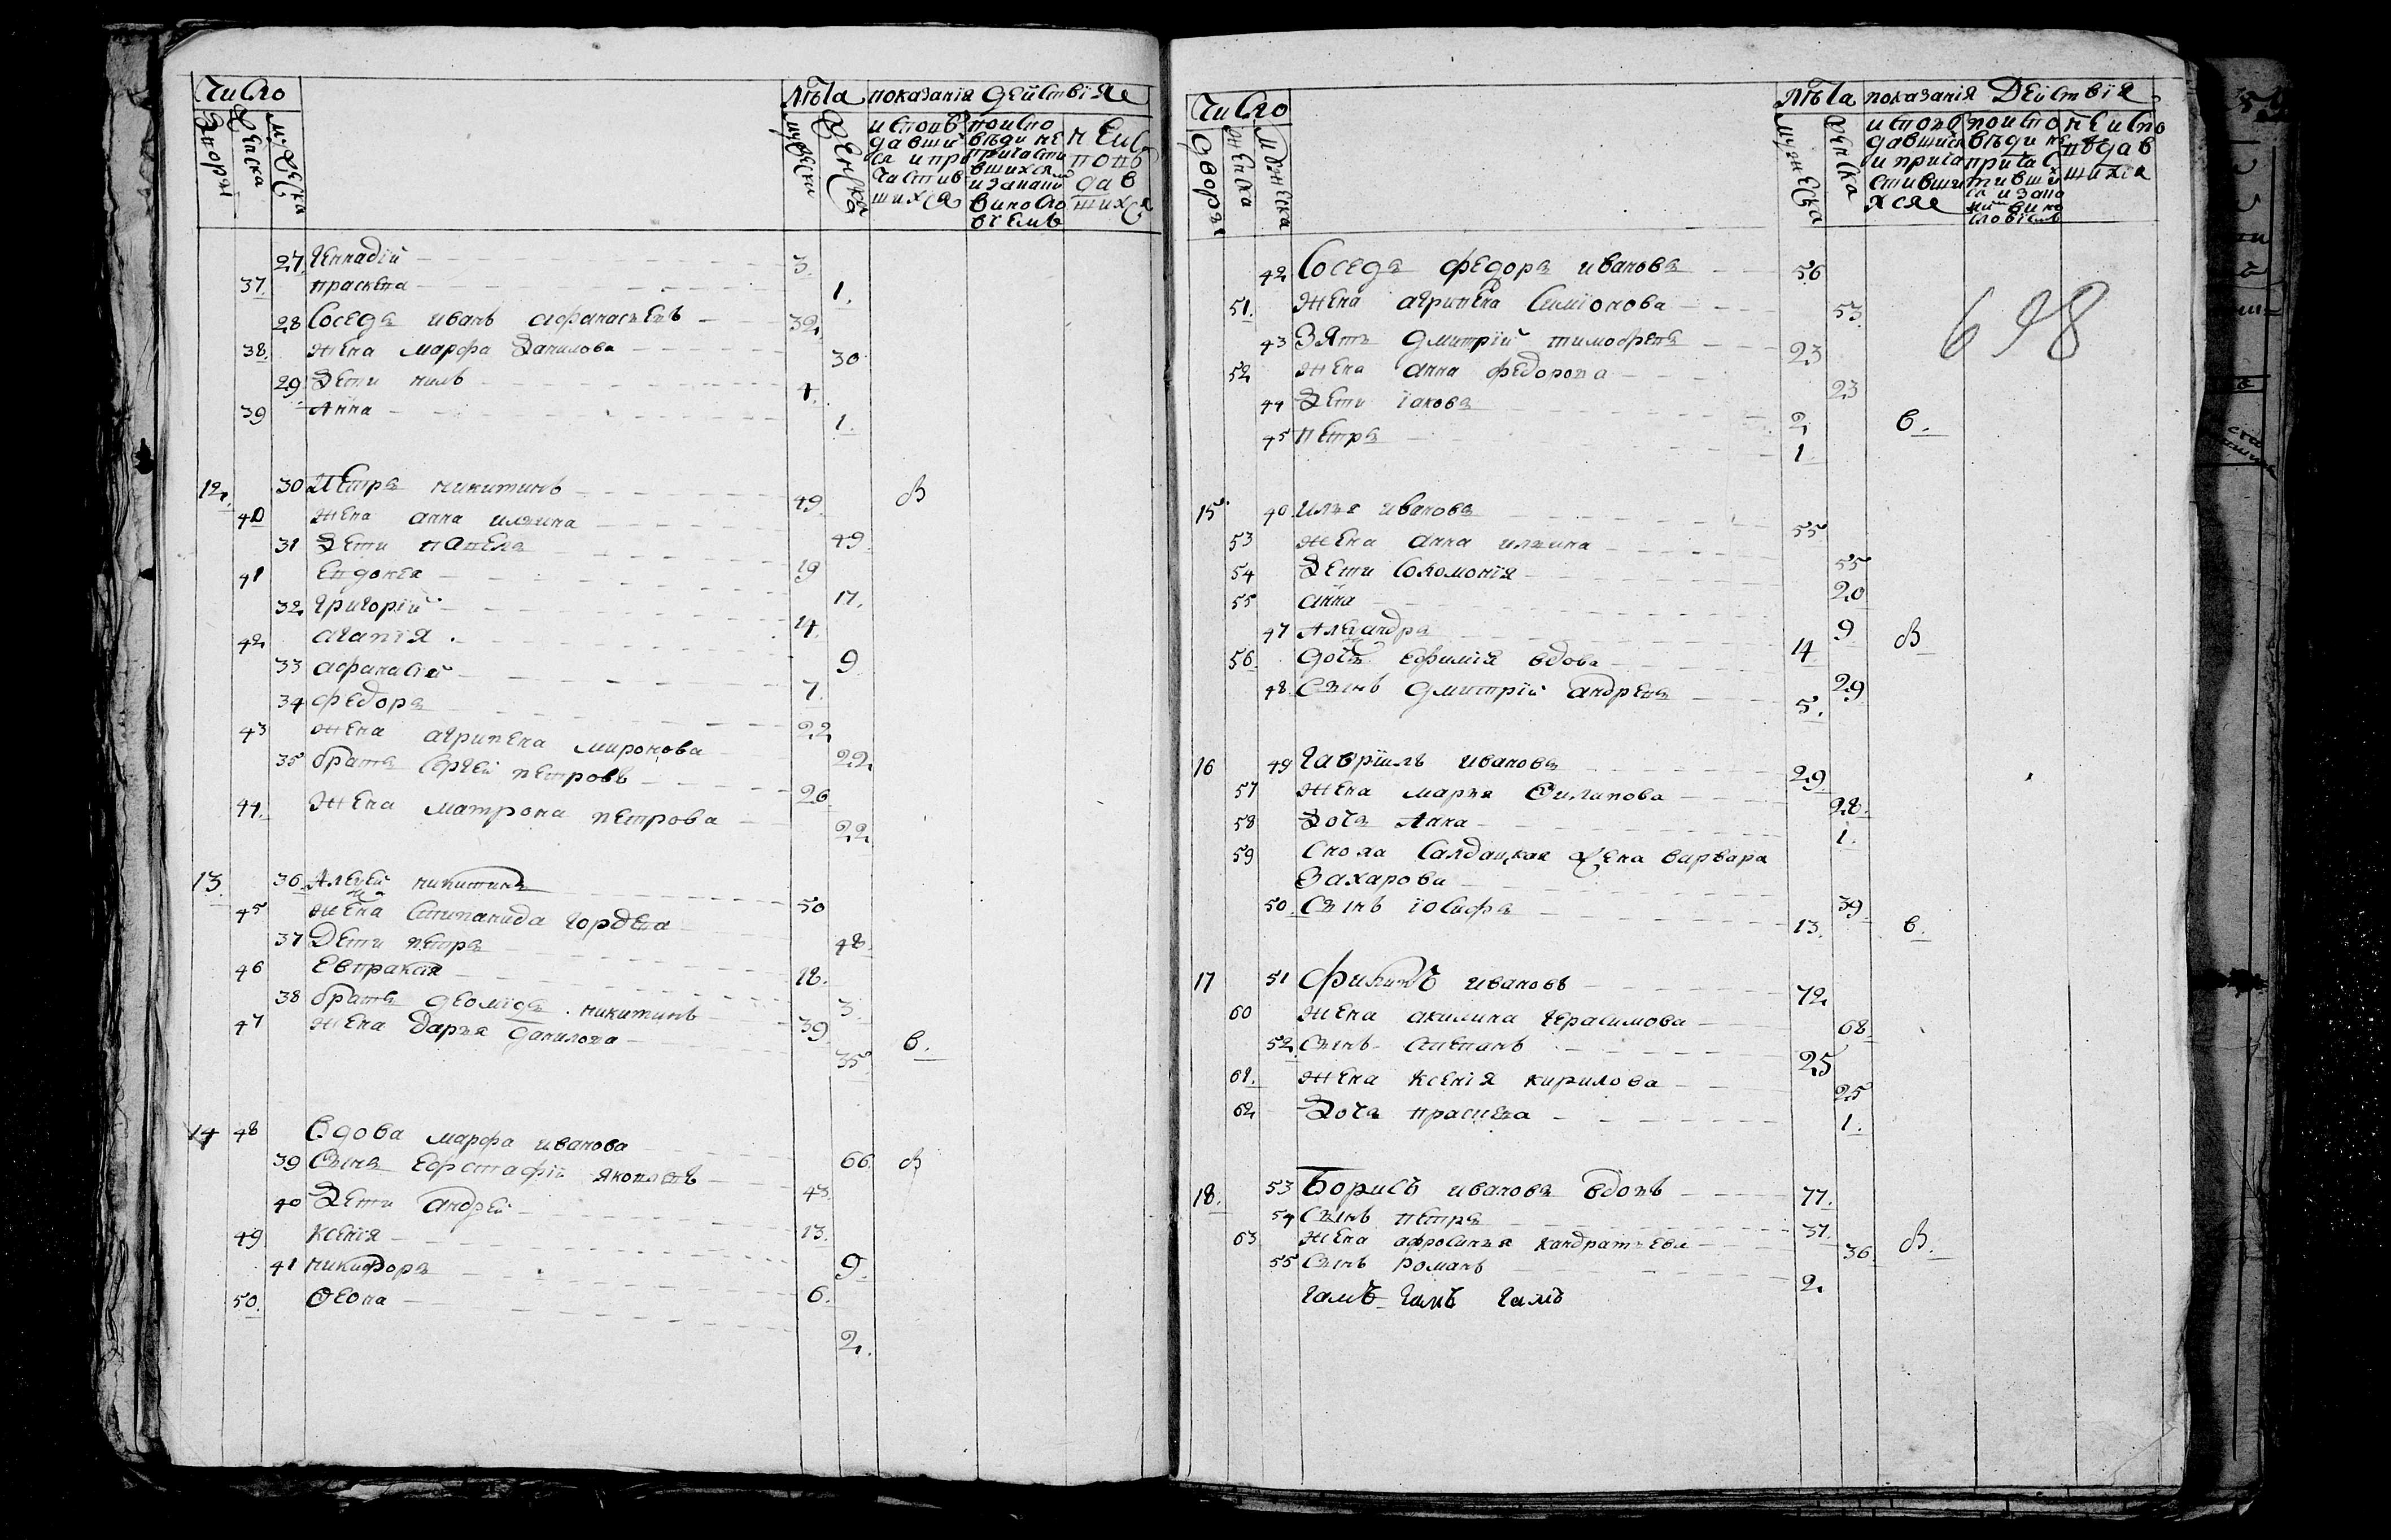 Число Лѣта показанія действіяе
Дворы
женска
мужеска
мужески
женска
исповѣдавшихся и причастившихся
по исповѣди не причастившихся и за каким винословіемъ
не исповѣдавшихся
27 Геннадій 3.
37. праскева 1.
28 Соседъ иванъ афанасьевъ 32,
38. жена марфа Данилова 30
29. Дети нилъ 4.
39 Анна 1.
12, 30 Петръ никитинъ 49. в
40 жена анна ильина 49.
31 Дети павелъ 19
41 Евдокея 17.
32, Григорій 14.
42 агапія 9
33 афанасій 7.
34 федоръ 22
43 жена агрипена миронова 22,
35 братъ Сергей петровъ 26.
44. жена матрона петрова 22
13. 36. Алеѯей никитинъ 50
45 жена Степанида гордева 48.
37 Дети петръ 18.
46 Евпраксия 3.
38 братъ деомидъ никитинъ 39
47 жена дарья данилова 35 в.
14 48 Вдова марфа иванова 66. в
39 Сынъ Ефстафій яковлевъ 43.
40 Дети андрей 13.
49. ксенія 9.
41 никифоръ 6.
50. Феона 2.
Число Лѣта показанія Действія
Дворы
женска
мужеска
мужеска
женска
исповѣдавшихся и причастившихсяе
по исповѣди не причастившихся и за каким винословіемъ
не исповѣдавшихся
42 Соседъ федоръ ивановъ 56
51. жена агрипена Симіонова 53.
698
43 Зять дмитрій тимофеевъ 23
52 жена анна федорова 23
44 Дети іаковъ 2,
45 петръ 1 в.
15. 46 илья ивановъ 55
53 жена анна ильина 55
54 Дети Соломонія 20
55 анна 9
47 Алеѯандръ 14 в
56. дочь Ефимія вдова 29
48. Сынъ дмитрій андревъ 5.
16 49 Гавріилъ ивановъ 29.
57 жена марья Филипова 28.
58 Дочь Анна 1.
59 Сноха Салдацкая жена варвара
Захарова 39.
50. Сынъ іосифъ 13. в.
17 51 Филипъ ивановъ 72,
60 жена акилина герасимова 68
52, Сынъ степанъ 25
61. жена ксенія кирилова 25
62 Дочь праскева 1.
18. 53 Борисъ ивановъ вдовъ 77.
54 Сынъ петръ 37.
63 жена афросинья кандратьева 36. в.
55 Сынъ романъ 2.